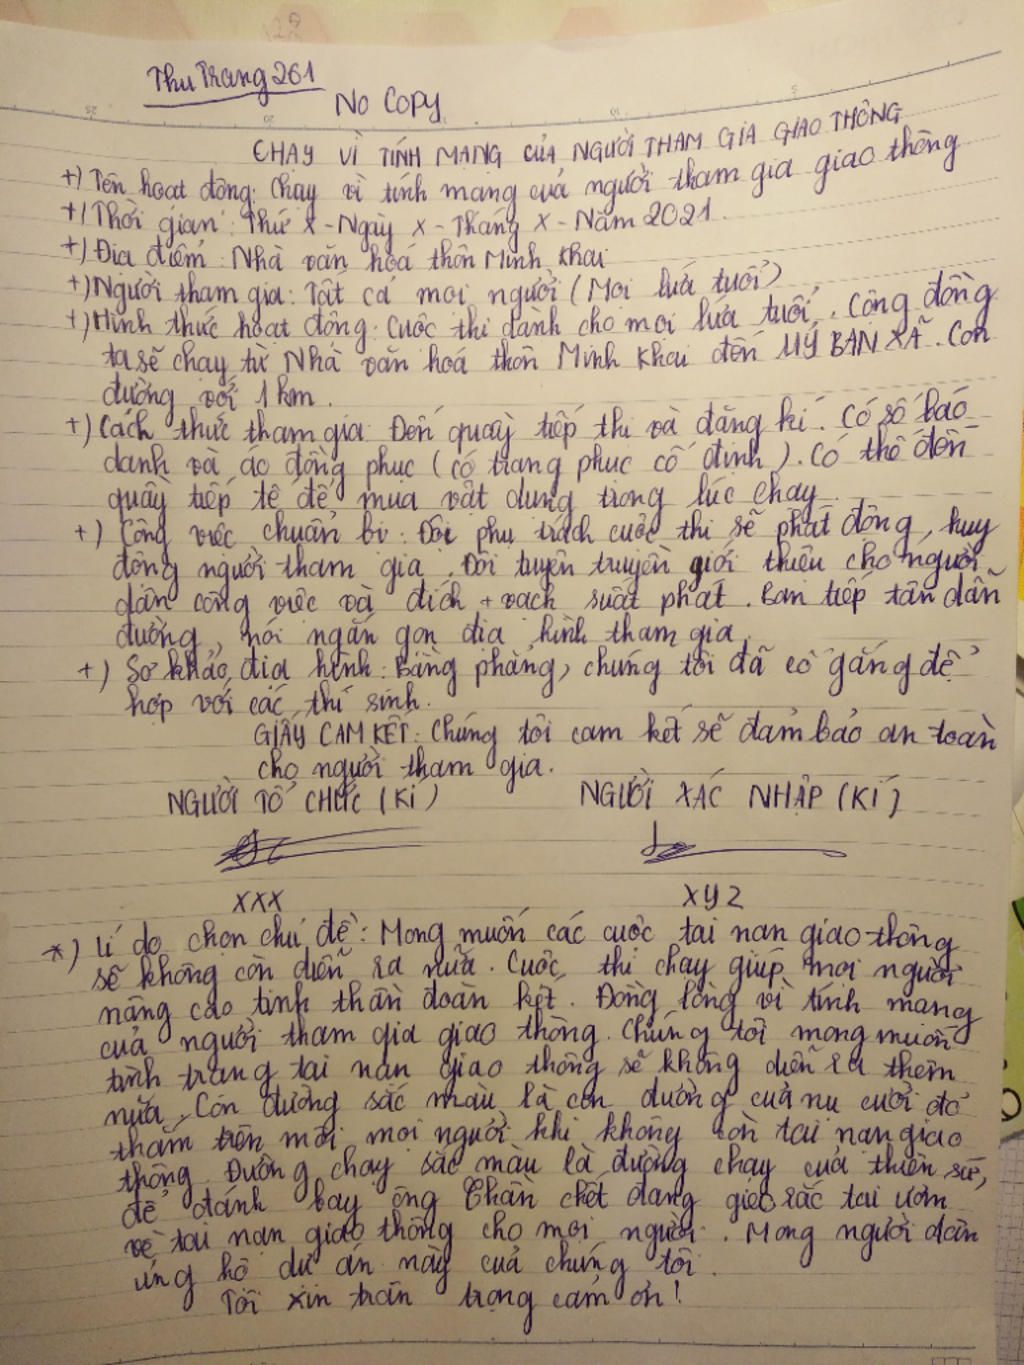 Thu Trang 261
No Copy
CHẠY VÌ TÍNH MẠNG CỦA NGƯỜI THAM GIA GIAO THÔNG
+) Tên hoạt động: Chạy vì tính mạng của người tham gia giao thông
+) Thời gian: Thứ X - Ngày X - Tháng X - Năm 2021.
+) Địa điểm: Nhà văn hoá thôn Minh Khai
+) Người tham gia: Tất cả mọi người (Mọi lứa tuổi)
+) Hình thức hoạt động: Cuộc thi dành cho mọi lứa tuổi. Cộng đồng
ta sẽ chạy từ Nhà văn hoá thôn Minh Khai đến UỶ BAN XÃ. Con
đường với 1 km.
+) Cách thức tham gia: Đến quầy tiếp thị và đăng kí. Có số báo
danh và áo đồng phục (có trang phục cố định). Có thể đến
quầy tiếp tế để mua vật dụng trong lúc chạy.
+) Công việc chuẩn bị: Đội phụ trách cuộc thi sẽ phát động, huy
động người tham gia. Đội tuyên truyền giới thiệu cho người
dân công việc và đích + vạch suất phát. Ban tiếp tân dẫn
đường, nói ngắn gọn địa hình tham gia.
+) Sơ khảo địa hình: Bằng phẳng, chúng tôi đã cố gắng để
hợp với các thí sinh.
GIẤY CAM KẾT: Chúng tôi cam kết sẽ đảm bảo an toàn
cho người tham gia.
NGƯỜI TỔ CHỨC (KÍ) NGƯỜI XÁC NHẬP (KÍ)
XXX XYZ
*) Lí do chọn chủ đề: Mong muốn các cuộc tai nạn giao thông
sẽ không còn diễn ra nữa. Cuộc thi chạy giúp mọi người
nâng cao tinh thần đoàn kết. Đồng lòng vì tính mạng
của người tham gia giao thông. Chúng tôi mong muốn
tình trạng tai nạn giao thông sẽ không diễn ra thêm
nữa. Con đường sắc màu là con đường của nụ cười đỏ
thắm trên môi mọi người khi không còn tai nạn giao
thông. Đường chạy sắc màu là đường chạy của thiên sứ,
để đánh bay ông Thần chết đang gieo rắc tai ươm
về tai nạn giao thông cho mọi người. Mong người dân
ủng hộ dự án này của chúng tôi.
Tôi xin trân trọng cảm ơn!